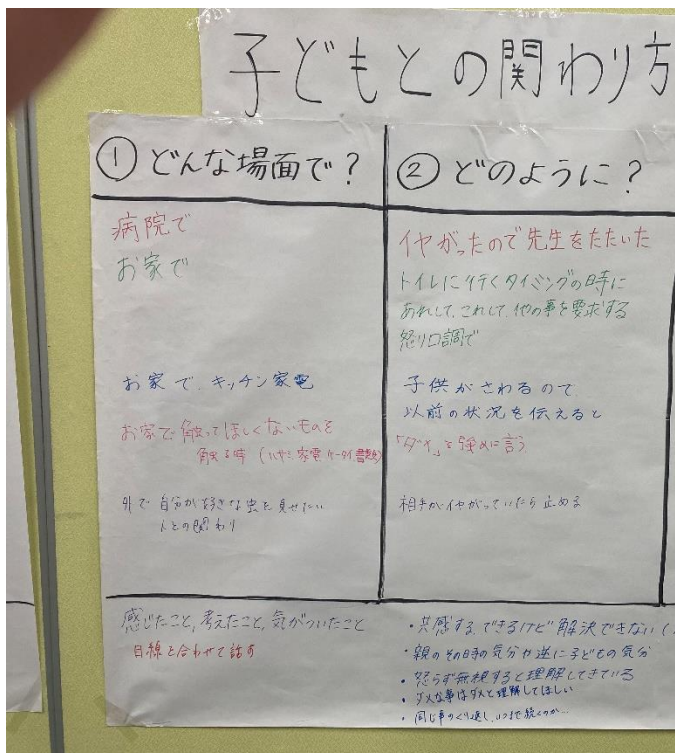 子どもとの関わり方
① どんな場面で？
病院で
お家で
お家で、キッチン家電
お家で触ってほしくないものを
触る時 (ハサミ 家電 ケータイ 書類)
外で 自分が好きな虫を見せたい
人との関わり
② どのように？
イヤがったので先生をたたいた
トイレに行くタイミングの時に
あれして、これして、他の事を要求する
怒り口調で
子供がさわるので
以前の状況を伝えると
「ダメ」と強めに言う
相手がイヤがっていたら止める
感じたこと, 考えたこと, 気がついたこと
目線を合わせて話す
・共感する、できるけど解決できない (
・親のその時の気分や逆に子どもの気分
・怒らず無視すると理解してきている
・ダメな事はダメと理解してほしい
・同じ事のくり返し、いつまで続くのか…